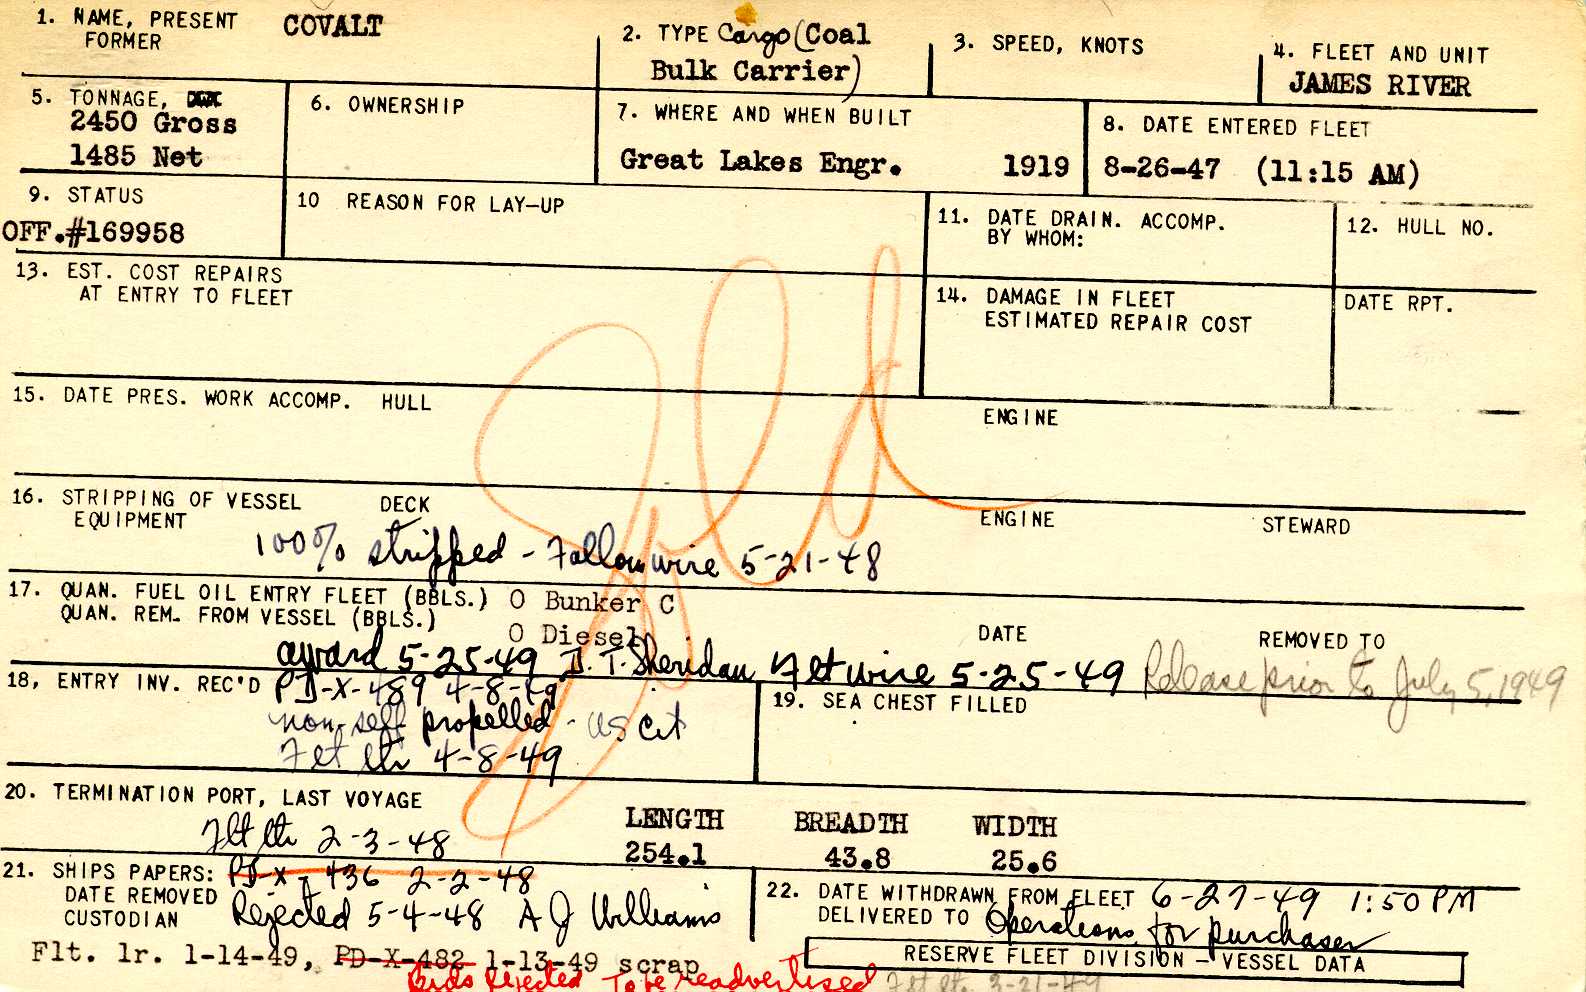 1. NAME, PRESENT COVALT
FORMER
2. TYPE Cargo (Coal
Bulk Carrier)
3. SPEED, KNOTS
4. FLEET AND UNIT
JAMES RIVER
5. TONNAGE,
2450 Gross
1485 Net
6. OWNERSHIP
7. WHERE AND WHEN BUILT
Great Lakes Engr. 1919
8. DATE ENTERED FLEET
8-26-47 (11:15 AM)
9. STATUS
OFF.#169958
10 REASON FOR LAY-UP
11. DATE DRAIN. ACCOMP.
BY WHOM:
12. HULL NO.
13. EST. COST REPAIRS
AT ENTRY TO FLEET
Sold
14. DAMAGE IN FLEET
ESTIMATED REPAIR COST
DATE RPT.
15. DATE PRES. WORK ACCOMP. HULL
ENGINE
16. STRIPPING OF VESSEL DECK
EQUIPMENT
ENGINE
STEWARD
100% stripped - Fallon wire 5-21-48
17. QUAN. FUEL OIL ENTRY FLEET (BBLS.) O Bunker C
QUAN. REM. FROM VESSEL (BBLS.)
O Diesel
DATE
REMOVED TO
award 5-25-49 D. T. Sheridan Flt wire 5-25-49 Release prior to July 5, 1949
18, ENTRY INV. REC'D PD-X-489 4-8-49
non-self propelled - US cit
Flt ltr 4-8-49
19. SEA CHEST FILLED
20. TERMINATION PORT, LAST VOYAGE
Flt ltr 2-3-48
LENGTH BREADTH WIDTH
254.1 43.8 25.6
21. SHIPS PAPERS: PD-X-436 2-2-48
DATE REMOVED
CUSTODIAN
Rejected 5-4-48 A J Williams
22. DATE WITHDRAWN FROM FLEET 6-27-49 1:50 PM
DELIVERED TO Operations for purchaser
Flt. lr. 1-14-49, PD-X-482 1-13-49 scrap
RESERVE FLEET DIVISION - VESSEL DATA
Bids Rejected To be readvertised Flt lt. 3-21-49